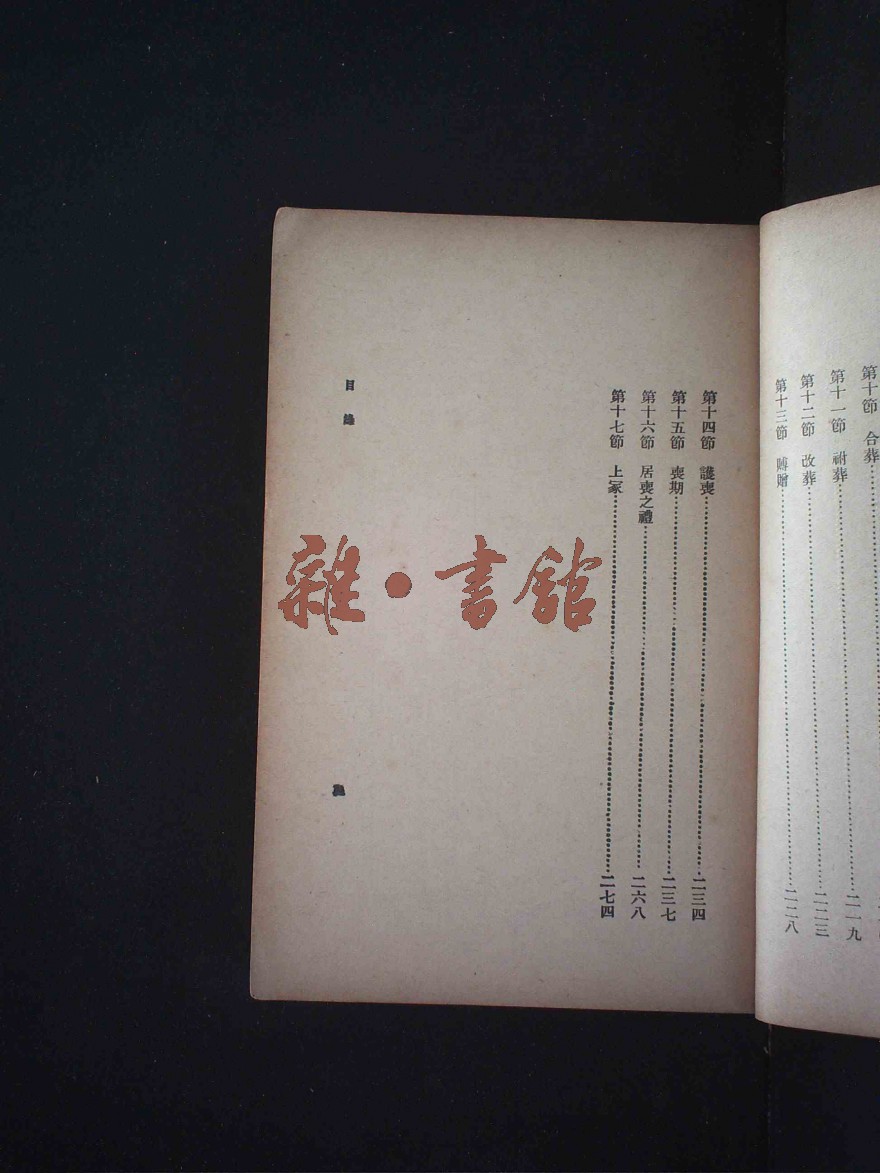 第十節 合葬
第十一節 祔葬……二一九
第十二節 改葬……二二三
第十三節 賻贈……二二八
第十四節 護喪……二三四
第十五節 喪期……二三七
第十六節 居喪之禮……二六八
第十七節 上冢……二七四
目錄
雜·書館